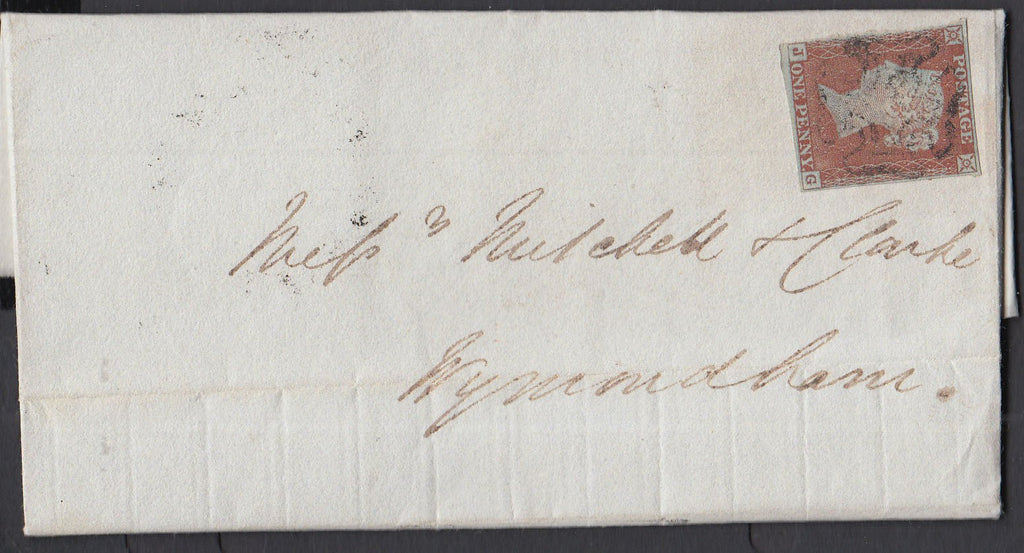 POSTAGE
J ONE PENNY G
Messrs Mitchell & Clarke
Wymondham.